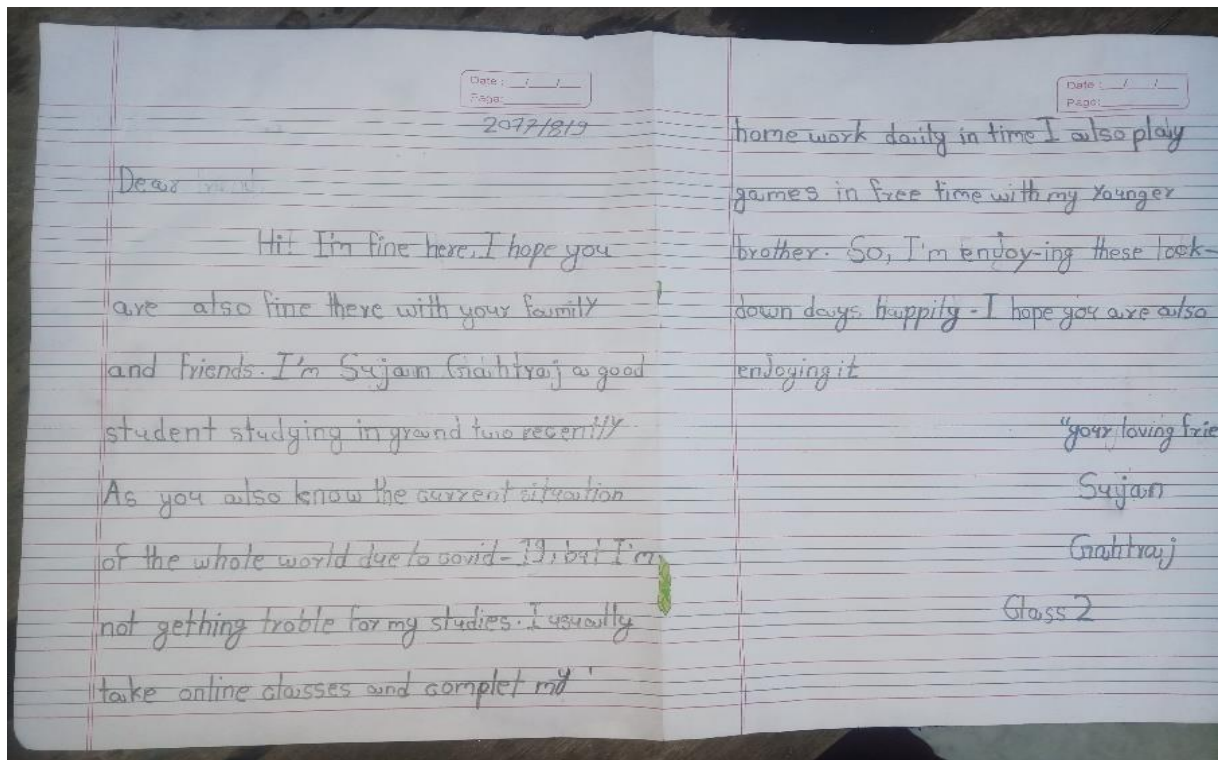 Date : __/__/__
Page:
2077/8/9
Dear
Hi! I'm fine here, I hope you
are also fine there with your family
and friends. I'm Sujan Gahtraj a good
student studying in grand two recently
As you also know the current situation
of the whole world due to covid-19, but I'm
not gething troble for my studies. I usually
take online classes and complet my
Date : __/__/__
Page:
home work daily in time I also play
games in free time with my younger
brother. So, I'm enjoy-ing these lock-
down days happily. I hope you are also
enjoying it
"your loving frie
Sujan
Gahtraj
Class 2